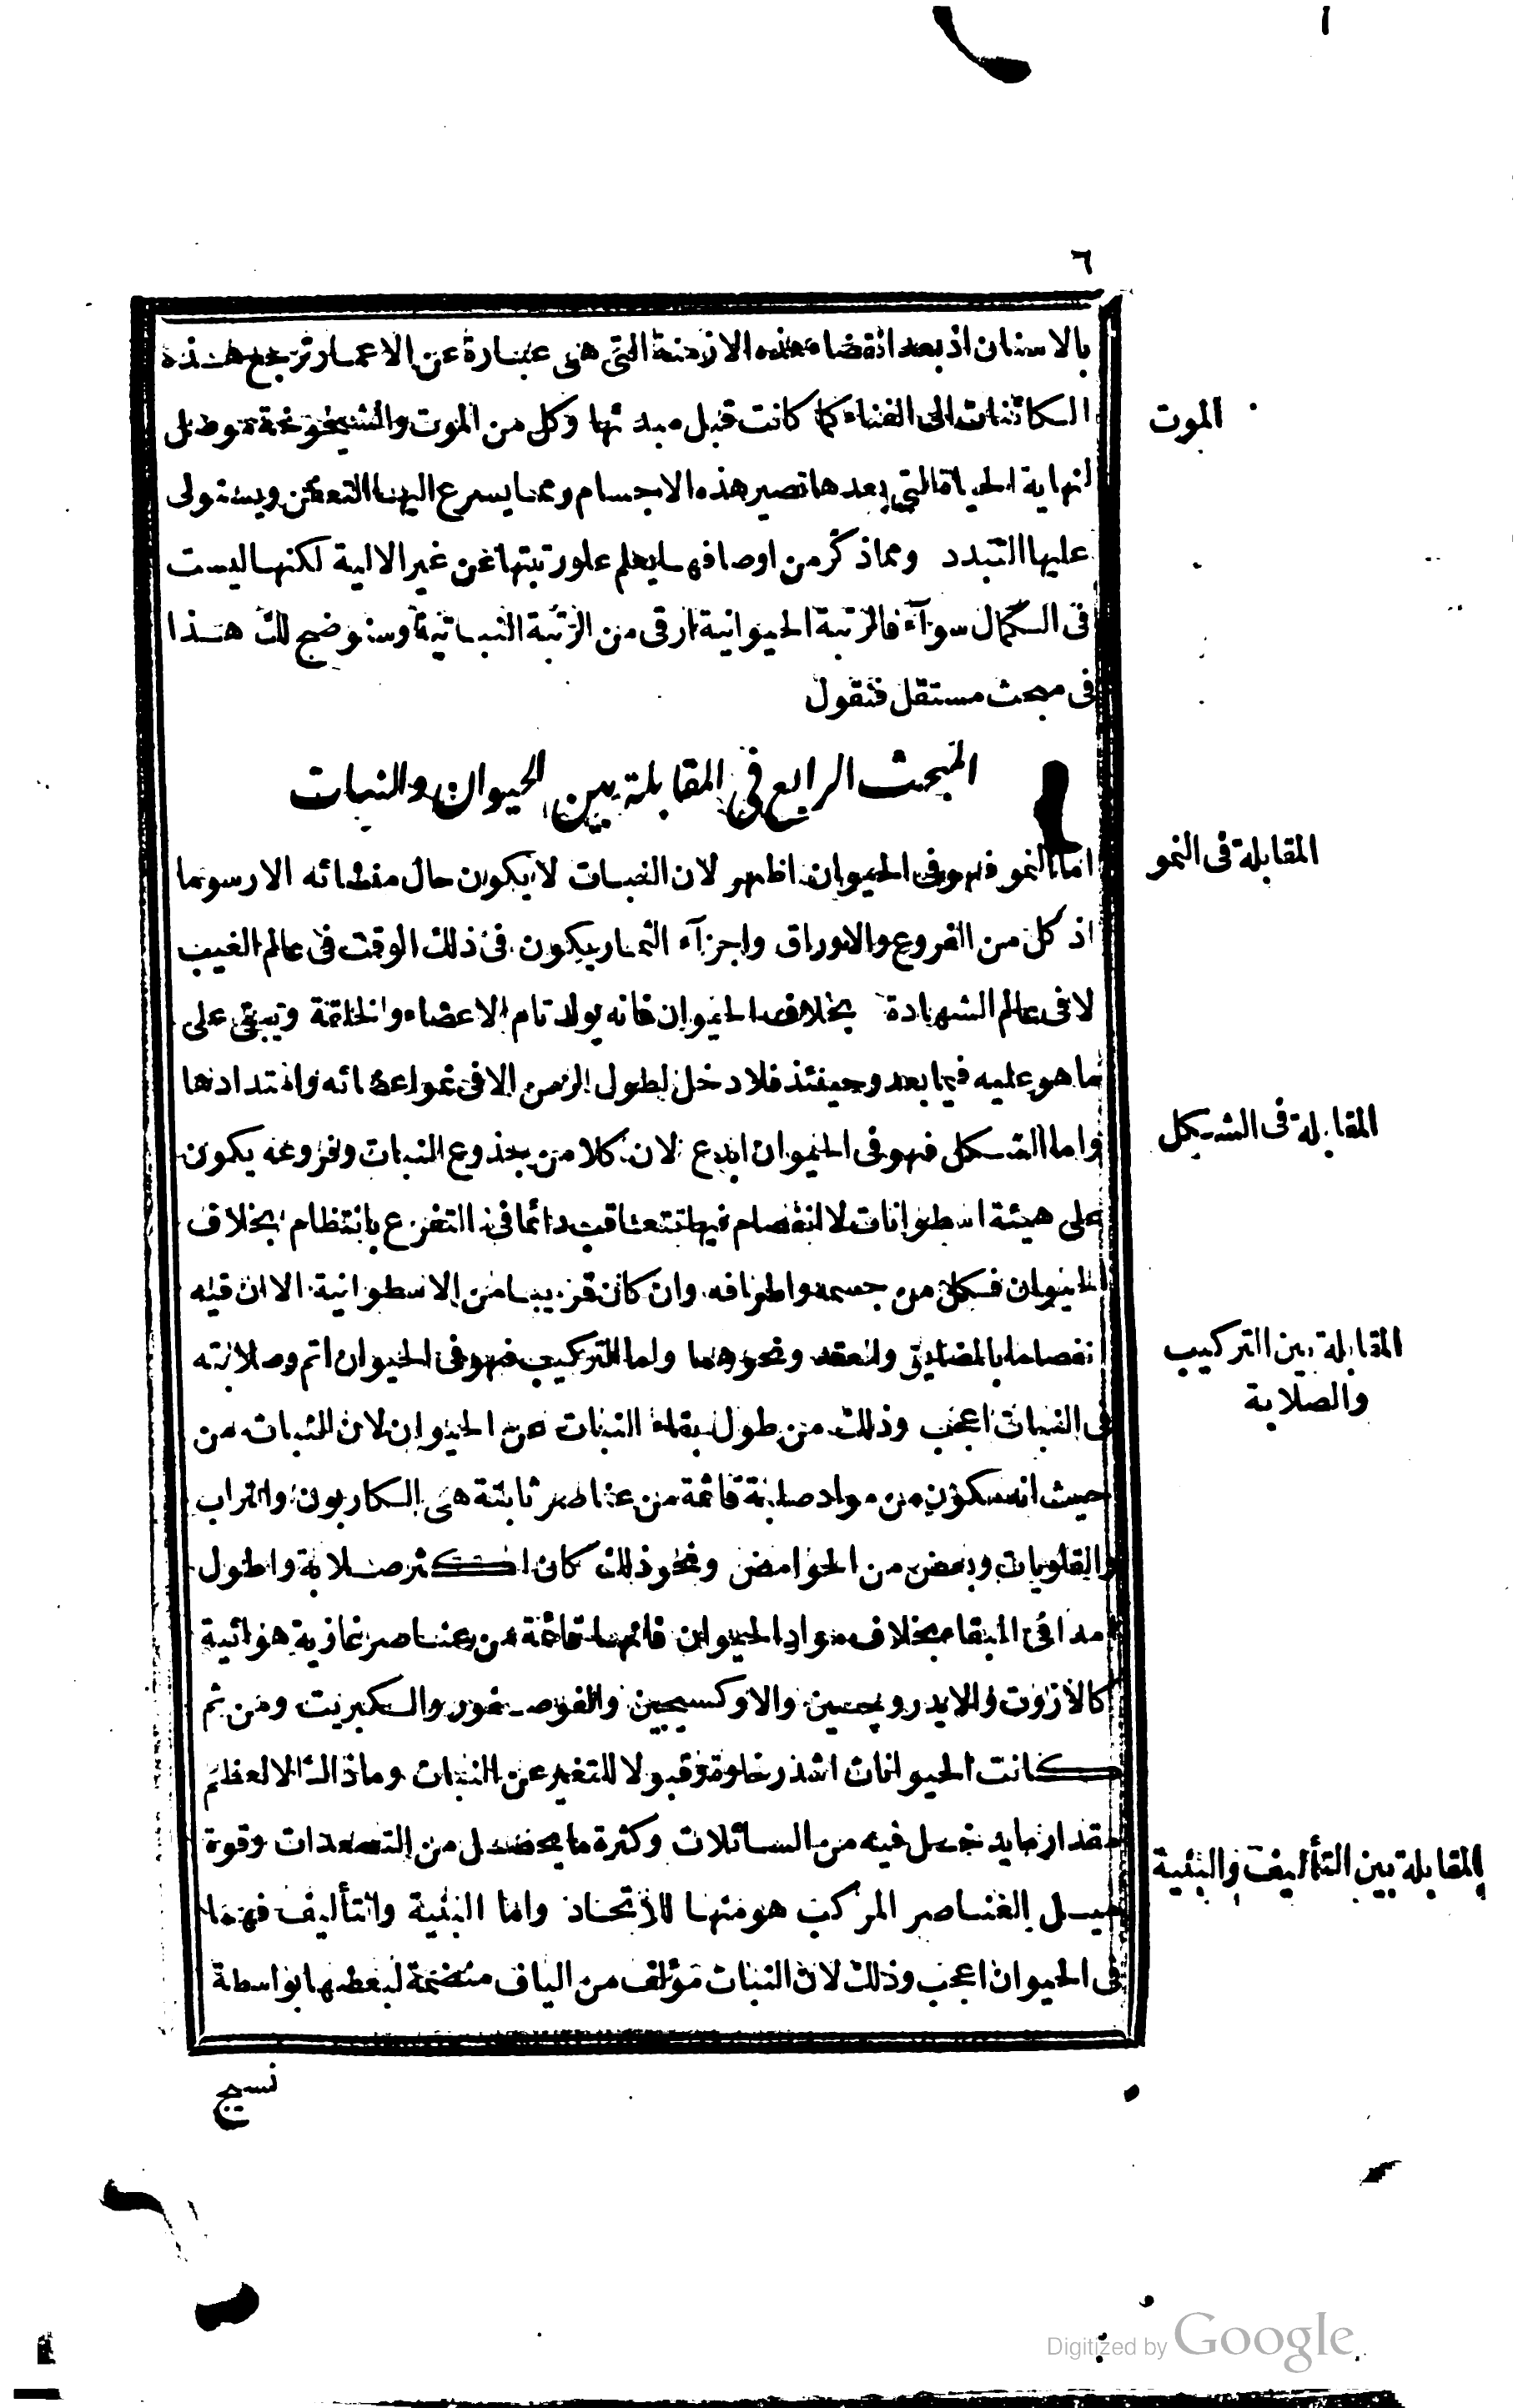 ٦
بالاسنان اذ بعد انقضاء هذه الازمنة التى هى عبارة عن الاعمار ترجع هذه
الكائنات الى الفناء كما كانت قبل مبدئها وكل من الموت والشيخوخة موصل
الموت
لنهاية الحياة التى بعدها تصير هذه الاجسام ومما يسرع اليها التعفن ويستولى
عليها التبدد ومما ذكر من اوصافها يعلم علو رتبتها عن غير الالية لكنها ليست
فى الكمال سوآء فالرتبة الحيوانية ارقى من الرتبة النباتية وسنوضح لك هذا
فى مبحث مستقل فنقول
المبحث الرابع فى المقابلة بين الحيوان والنبات
اما النمو فهو فى الحيوان اظهر لان النبات لا يكون حال منشائه الا رسوما
المقابلة فى النمو
اذ كل من الفروع والاوراق واجزآء الثمار يكون فى ذلك الوقت فى عالم الغيب
لا فى عالم الشهادة بخلاف الحيوان فانه يولد تام الاعضاء والخلقة ويبقى على
ما هو عليه فيما بعد وحينئذ فلا دخل لطول الزمن الا فى نمو اعضائه وامتدادها
واما التشكل فهو فى الحيوان ابدع لان كلا من جذوع النبات وفروعه يكون
المقابلة فى الشكل
على هيئة اسطوانات لا انفصام فيها تتعاقب دائما فى التفرع بانتظام بخلاف
الحيوان فكل من جسمه واطرافه وان كان قريبا من الاسطوانية الا ان فيه
انفصاما بالمضايق والعقد ونحوهما واما التركيب فهو فى الحيوان اتم وصلابته
المقابلة بين التركيب
والصلابة
فى النبات اعجب وذلك من طول بقاء النبات عن الحيوان لان النبات من
حيث انه مكون من مواد صلبة قائمة من عناصر ثابتة هى الكاربون والتراب
والقلويات وبعض من الحوامض ونحو ذلك كان اكثر صلابة واطول
امدا فى البقاء بخلاف مواد الحيوان فانها قائمة من عناصر غازية هوائية
كالازوت والايدروجين والاوكسيجين والفوصفور والكبريت ومن ثم
كانت الحيوانات اشد رخاوة وقبولا للتغير عن النبات وما ذاك الا لعظم
مقدار ما يدخل فيه من السائلات وكثرة ما يحصل من التصعدات وقوة
ميل العناصر المركب هو منها للاتحاد واما البنية والتأليف فهما
المقابلة بين التأليف والبنية
فى الحيوان اعجب وذلك لان النبات مؤلف من الياف منضمة لبعضها بواسطة
نسيج
Digitized by Google